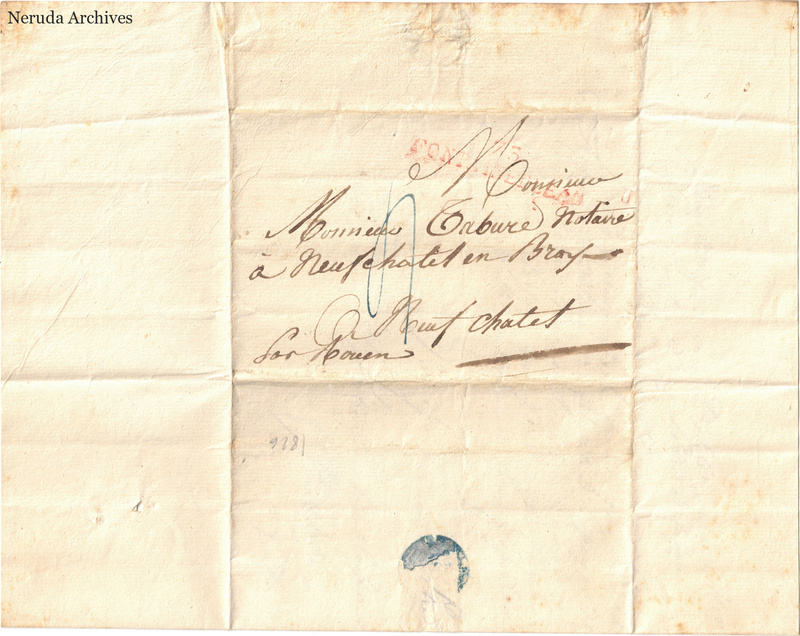 Neruda Archives
Monsieur
Monsieur Tabure Notaire
à Neufchatel en Bray
Neufchatel
par Rouen